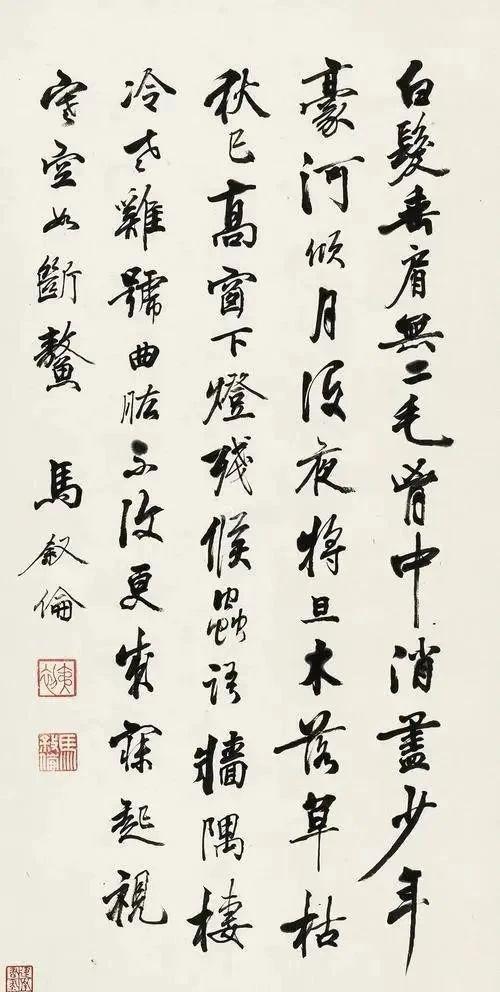 白髮垂肩無二毛胷中消盡少年
豪河傾月沒夜將旦木落草枯
秋已高窗下燈殘候蟲語牆隅棲
冷老雞號曲肱不復更成寐起視
寒空如斷鰲 馬叙倫